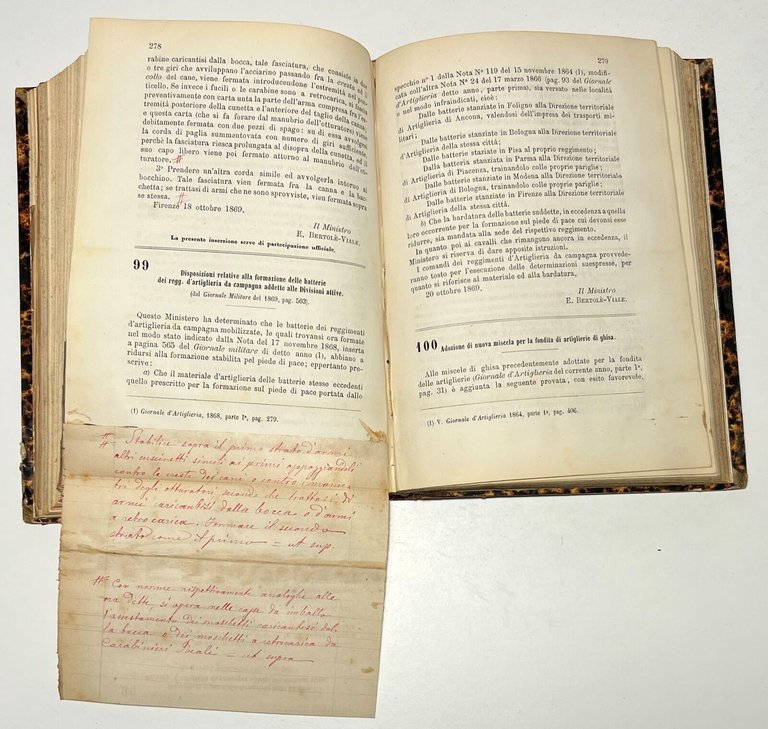 278
rabine caricantisi dalla bocca, tale fasciatura, che consiste in due
o tre giri che avviluppano l'acciarino passando fra la cresta ed il
collo del cane, viene fermata introducendone l'estremità nel ponticello. Se invece i fucili o le carabine sono a retrocarica, si fascia
preventivamente con carta unta la parte dell'arma compresa fra l'estremità posteriore della cunetta e l'anteriore del taglio della cassa;
e questa carta (che si fa forare dal manubrio dell'otturatore) viene
debitamente fermata con due pezzi di spago: su di essa avvolgesi
la corda di paglia summentovata con numero di giri sufficiente,
perchè la fasciatura riesca prolungata al disopra della cunetta, ed il
suo capo libero viene poi fermato attorno al manubrio dell'otturatore. #
3° Prendere un'altra corda simile ed avvolgerla intorno al
bocchino. Tale fasciatura vien fermata fra la canna e la bacchetta; se trattasi di armi che ne sono sprovviste, vien fermata sopra
se stessa. #
Firenze 18 ottobre 1869.
Il Ministro
E. BERTOLÈ-VIALE.
La presente inserzione serve di partecipazione ufficiale.
99
Disposizioni relative alla formazione delle batterie
dei regg. d'artiglieria da campagna addette alle Divisioni attive.
(dal Giornale Militare del 1869, pag. 563).
Questo Ministero ha determinato che le batterie dei reggimenti
d'artiglieria da campagna mobilizzate, le quali trovansi ora formate
nel modo stato indicato dalla Nota del 17 novembre 1868, inserta
a pagina 565 del Giornale militare di detto anno (1), abbiano a
ridursi alla formazione stabilita pel piede di pace; eppertanto prescrive:
a) Che il materiale d'artiglieria delle batterie stesse eccedenti
quello prescritto per la formazione sul piede di pace portata dallo
(1) Giornale d'Artiglieria, 1868, parte 1ª, pag. 279.
# Stabilire sopra il primo strato d'armi
altri cuscinetti simili ai primi appoggiandoli
contro le creste dei cani o contro i manubri
degli otturatori secondo che trattasi di
armi caricantisi dalla bocca o d'armi
a retrocarica. Formare il secondo
strato come il primo = ut sup.
# Con norme rispettivamente analoghe alle
ora dette, si opera nelle casse da imballo
l'assestamento dai moschetti caricantesi dalla bocca o dei moschetti a retrocarica da
Carabinieri Reali = ut supra
279
specchio n° 1 della Nota N° 119 del 15 novembre 1864 (1), modificata coll'altra Nota N° 24 del 17 marzo 1866 (pag. 93 del Giornale
d'Artiglieria detto anno, parte prima), sia versato nelle località
e nel modo infraindicati, cioè:
Dalle batterie stanziate in Foligno alla Direzione territoriale
di Artiglieria di Ancona, valendosi dell'impresa dei trasporti militari;
Dalle batterie stanziate in Bologna alla Direzione territoriale
d'Artiglieria della stessa città;
Dalle batterie stanziate in Pisa al proprio reggimento;
Dalla batterie stanziata in Parma alla Direzione territoriale
di Artiglieria di Piacenza, trainandolo colle proprie pariglie;
Dalle batterie stanziate in Modena alla Direzione territoriale
di Artiglieria di Bologna, trainandolo colle proprie pariglie;
Dalle batterie stanziate in Firenze alla Direzione territoriale
di Artiglieria della stessa città.
b) Che la bardatura delle batterie suddette, in eccedenza a quella
loro occorrente per la formazione sul piede di pace cui devonsi esse
ridurre, sia mandata alla sede del rispettivo reggimento.
In quanto poi ai cavalli che rimangono ancora in eccedenza, il
Ministero si riserva di dare apposite istruzioni.
I comandi dei reggimenti d'Artiglieria da campagna provvederanno tosto per l'esecuzione delle determinazioni suespresse, per
quanto si riferisce al materiale ed alla bardatura.
20 ottobre 1869.
Il Ministro
E. BERTOLÈ-VIALE.
100 Adozione di nuova miscela per la fondita di artiglierie di ghisa.
Alle miscele di ghisa precedentemente adottate per la fondita
delle artiglierie (Giornale d'Artiglieria del corrente anno, parte 1ª,
pag. 31) è aggiunta la seguente provata, con esito favorevole,
(1) V. Giornale d'Artiglieria 1864, parte 1ª, pag. 406.